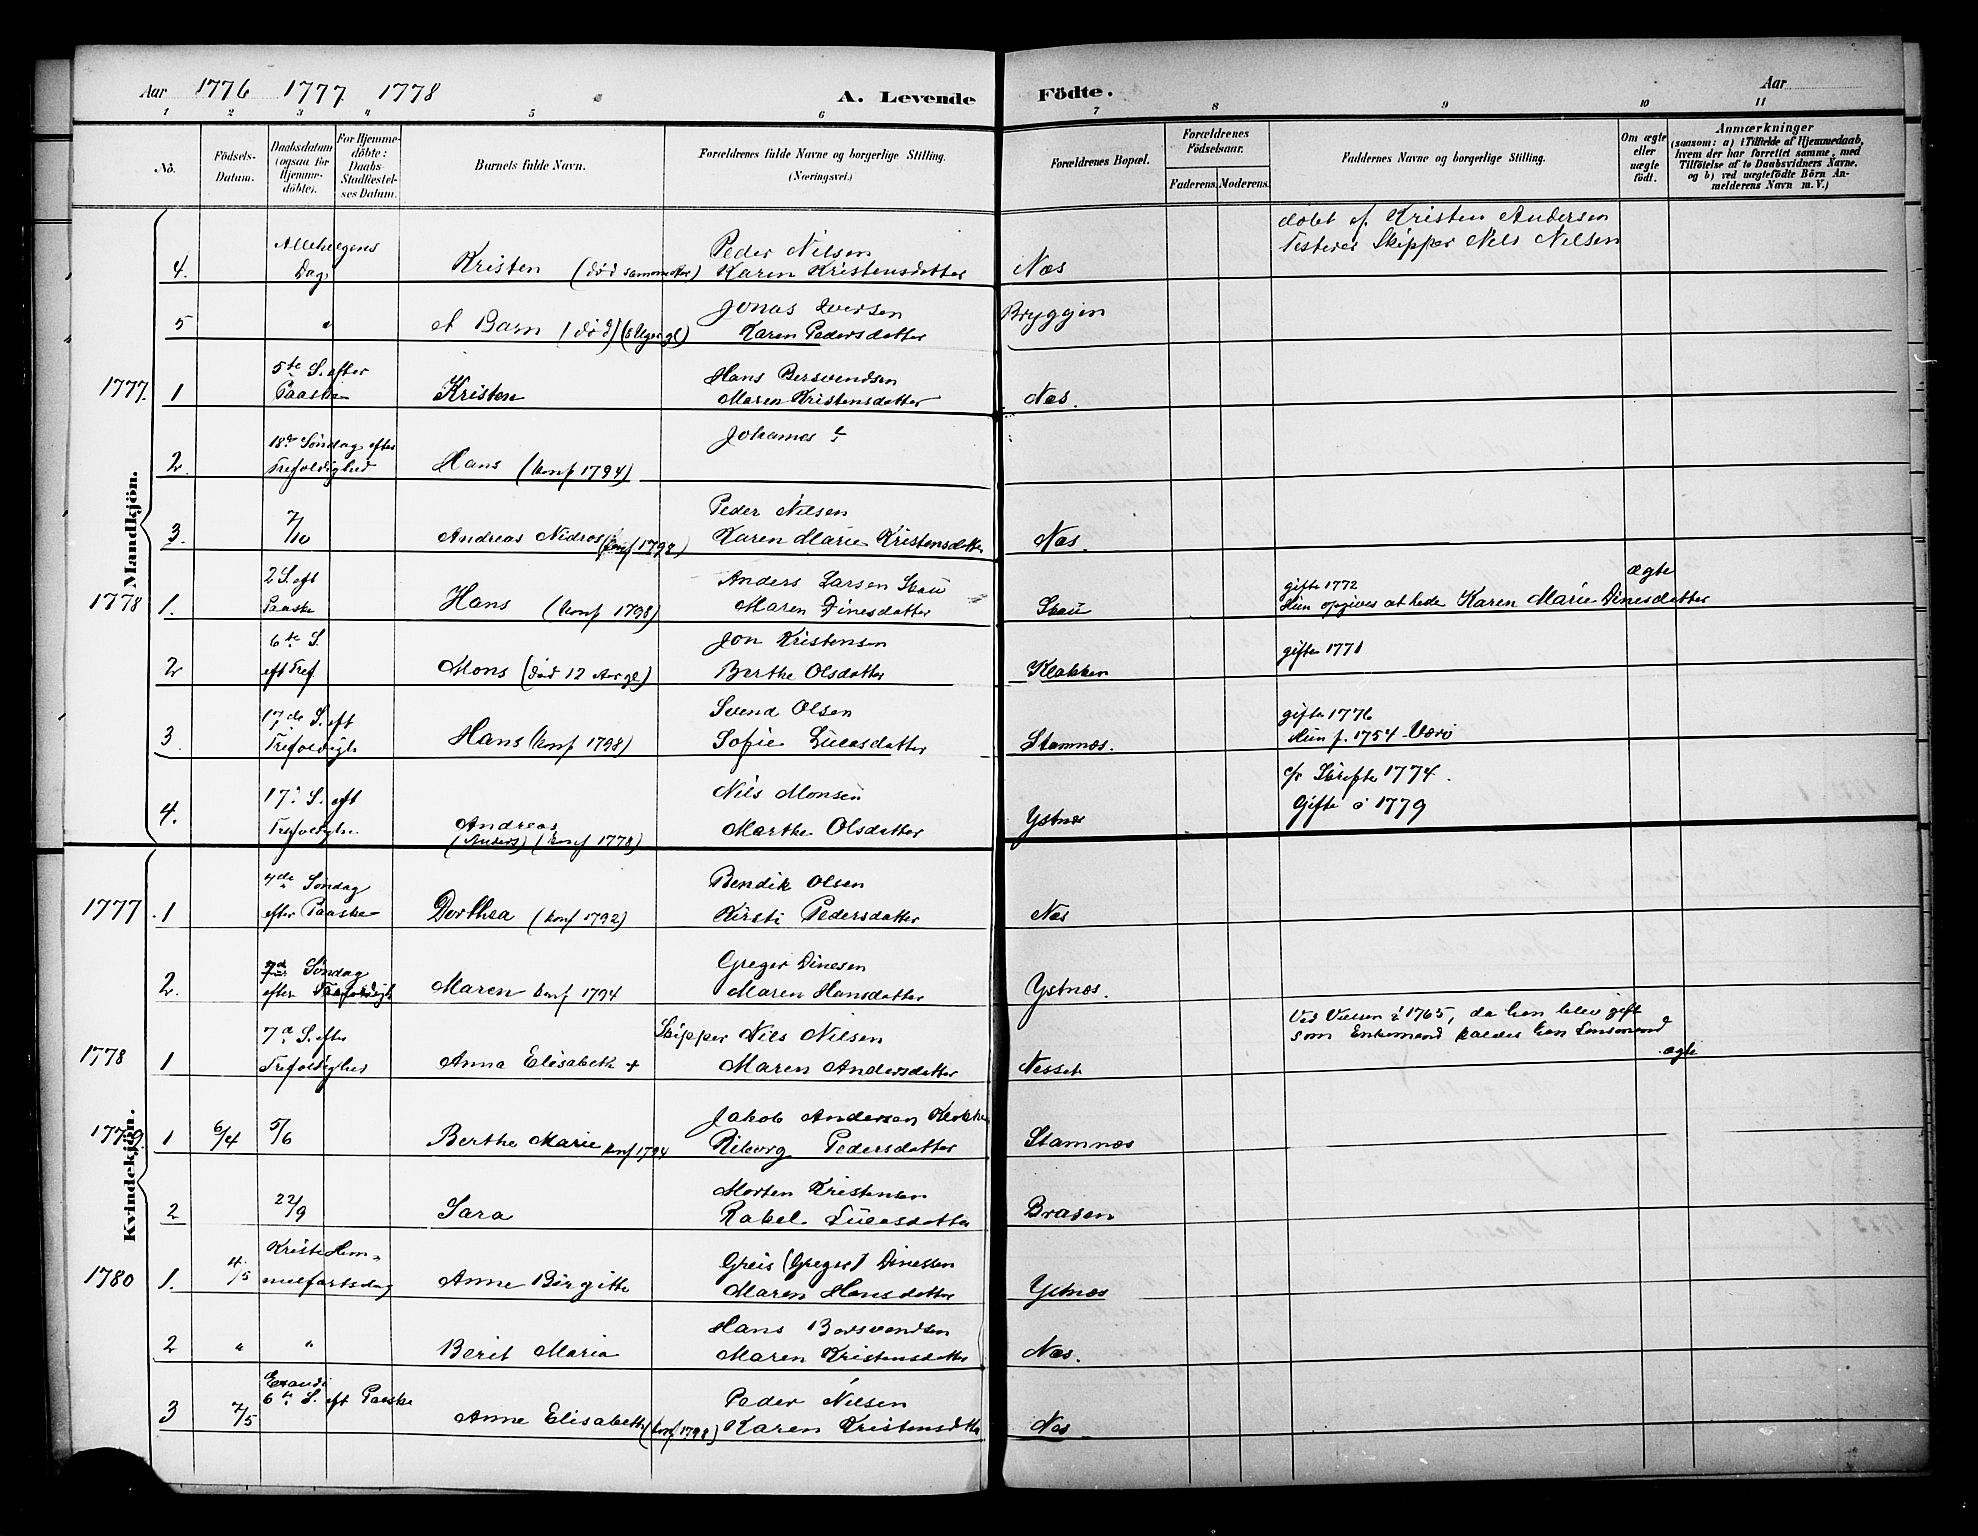 Aar 1776 1777 1778 A. Levende Födte. Aar
1 2 3 4 5 6 7 8 9 10 11
No. Födsels-Datum. Daabsdatum (ogsaa for Hjemmedöbte). For Hjemmedöbte: Daabs Stadfæstelses Datum. Barnets fulde Navn. Forældrenes fulde Navne og borgerlige Stilling. (Næringsvei.) Forældrenes Bopæl. Forældrenes Födselsaar. Faderens. Moderens. Faddernes Navne og borgerlige Stilling. Om ægte eller uægte födt. Anmærkninger (saasom: a) i Tilfælde af Hjemmedaab, hvem der har forrettet samme, med Tilföielse af to Daabsvidners Navne, og b) ved uægtefödte Börn Anmelderens Navn m. V.)
Mandkjön.
döbt af Kristen Andersen
Allehelgens Peder Nilsen Skipper Nils Nilsen
4. Dag Kristen (död Karen Kristensdatter Næs
Jonas Iversen
5 " et Barn (död) Karen Pedersdatter Bryggen
5te S. efter Hans Bersvendsen
1777. 1 Paaske Kristen Maren Kristensdatter Næs.
18de Söndag efter Johannes
2. Trefoldighed Hans (konf 1794)
Peder Nilsen
3. 7/10 Andreas Nidros (konf 1798) Karen Marie Kristensdatter Næs.
2 S. eft Anders Larsen Skau gifte 1772 ægte
1778 1. Paaske Hans (konf 1798) Maren Dinesdatter Skau Hun opgives at hede Karen Marie Dinesdatter
6te S. Jon Kristensen gifte 1771
2 eft Tref. Mons (död 12 Aar gl) Berthe Olsdatter Klakken
17de S. eft Svend Olsen gifte 1776
3. Trefoldigh Hans (konf 1798) Sofie Lucasdatter Stamnæs. Hun f. 1754
17. S. eft Nils Monsen Skrifte 1774.
4. Trefoldigh. Andreas Marthe Olsdatter Ystnæs Gifte i 1779
(Anders) (konf 1778)
Kvindekjön.
4de Söndag Bendik Olsen
1777 1 efter Paaske Dorthea (konf 1792) Kirsti Pedersdatter Næs
7d Söndag Greger Dinesen
2. efter Trefoldigh Maren konf 1794 Maren Hansdatter Ystnæs.
7d S. efter Skipper Nils Nilsen Ved Vielsen i 1765, da han blev gift
som Enkemand kaldes han Lensmand
1778 1 Trefoldighed Anna Elisabeth + Maren Andersdatter Nesset ægte
Jakob Andersen Klokker
1779 1 6/4 5/6 Berthe Marie konf 1794 Riborg Pedersdatter Stamnæs
Morten Kristensen
2 22/9 Sara Rakel Lucasdatter Brasen
Kristi Him- Greis (Greger) Dinessen
1780 1. 4/5 melfartsdag Anne Birgitte Maren Hansdatter Ystnæs
Hans Borsvendsen
2 " " Berit Maria Maren Kristensdatter Næs.
Exaudi
6te S. eft Paaske Peder Nilsen
3 7/5 Anne Elisabeth (konf 1798) Karen Kristensdtter Næs